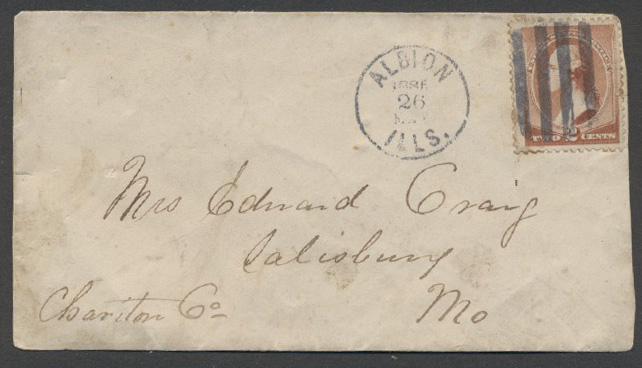 ALBION
1886
26
ILLS.
TWO 2 CENTS
Mrs Edward Craig
Salisbury
Chariton Co
Mo